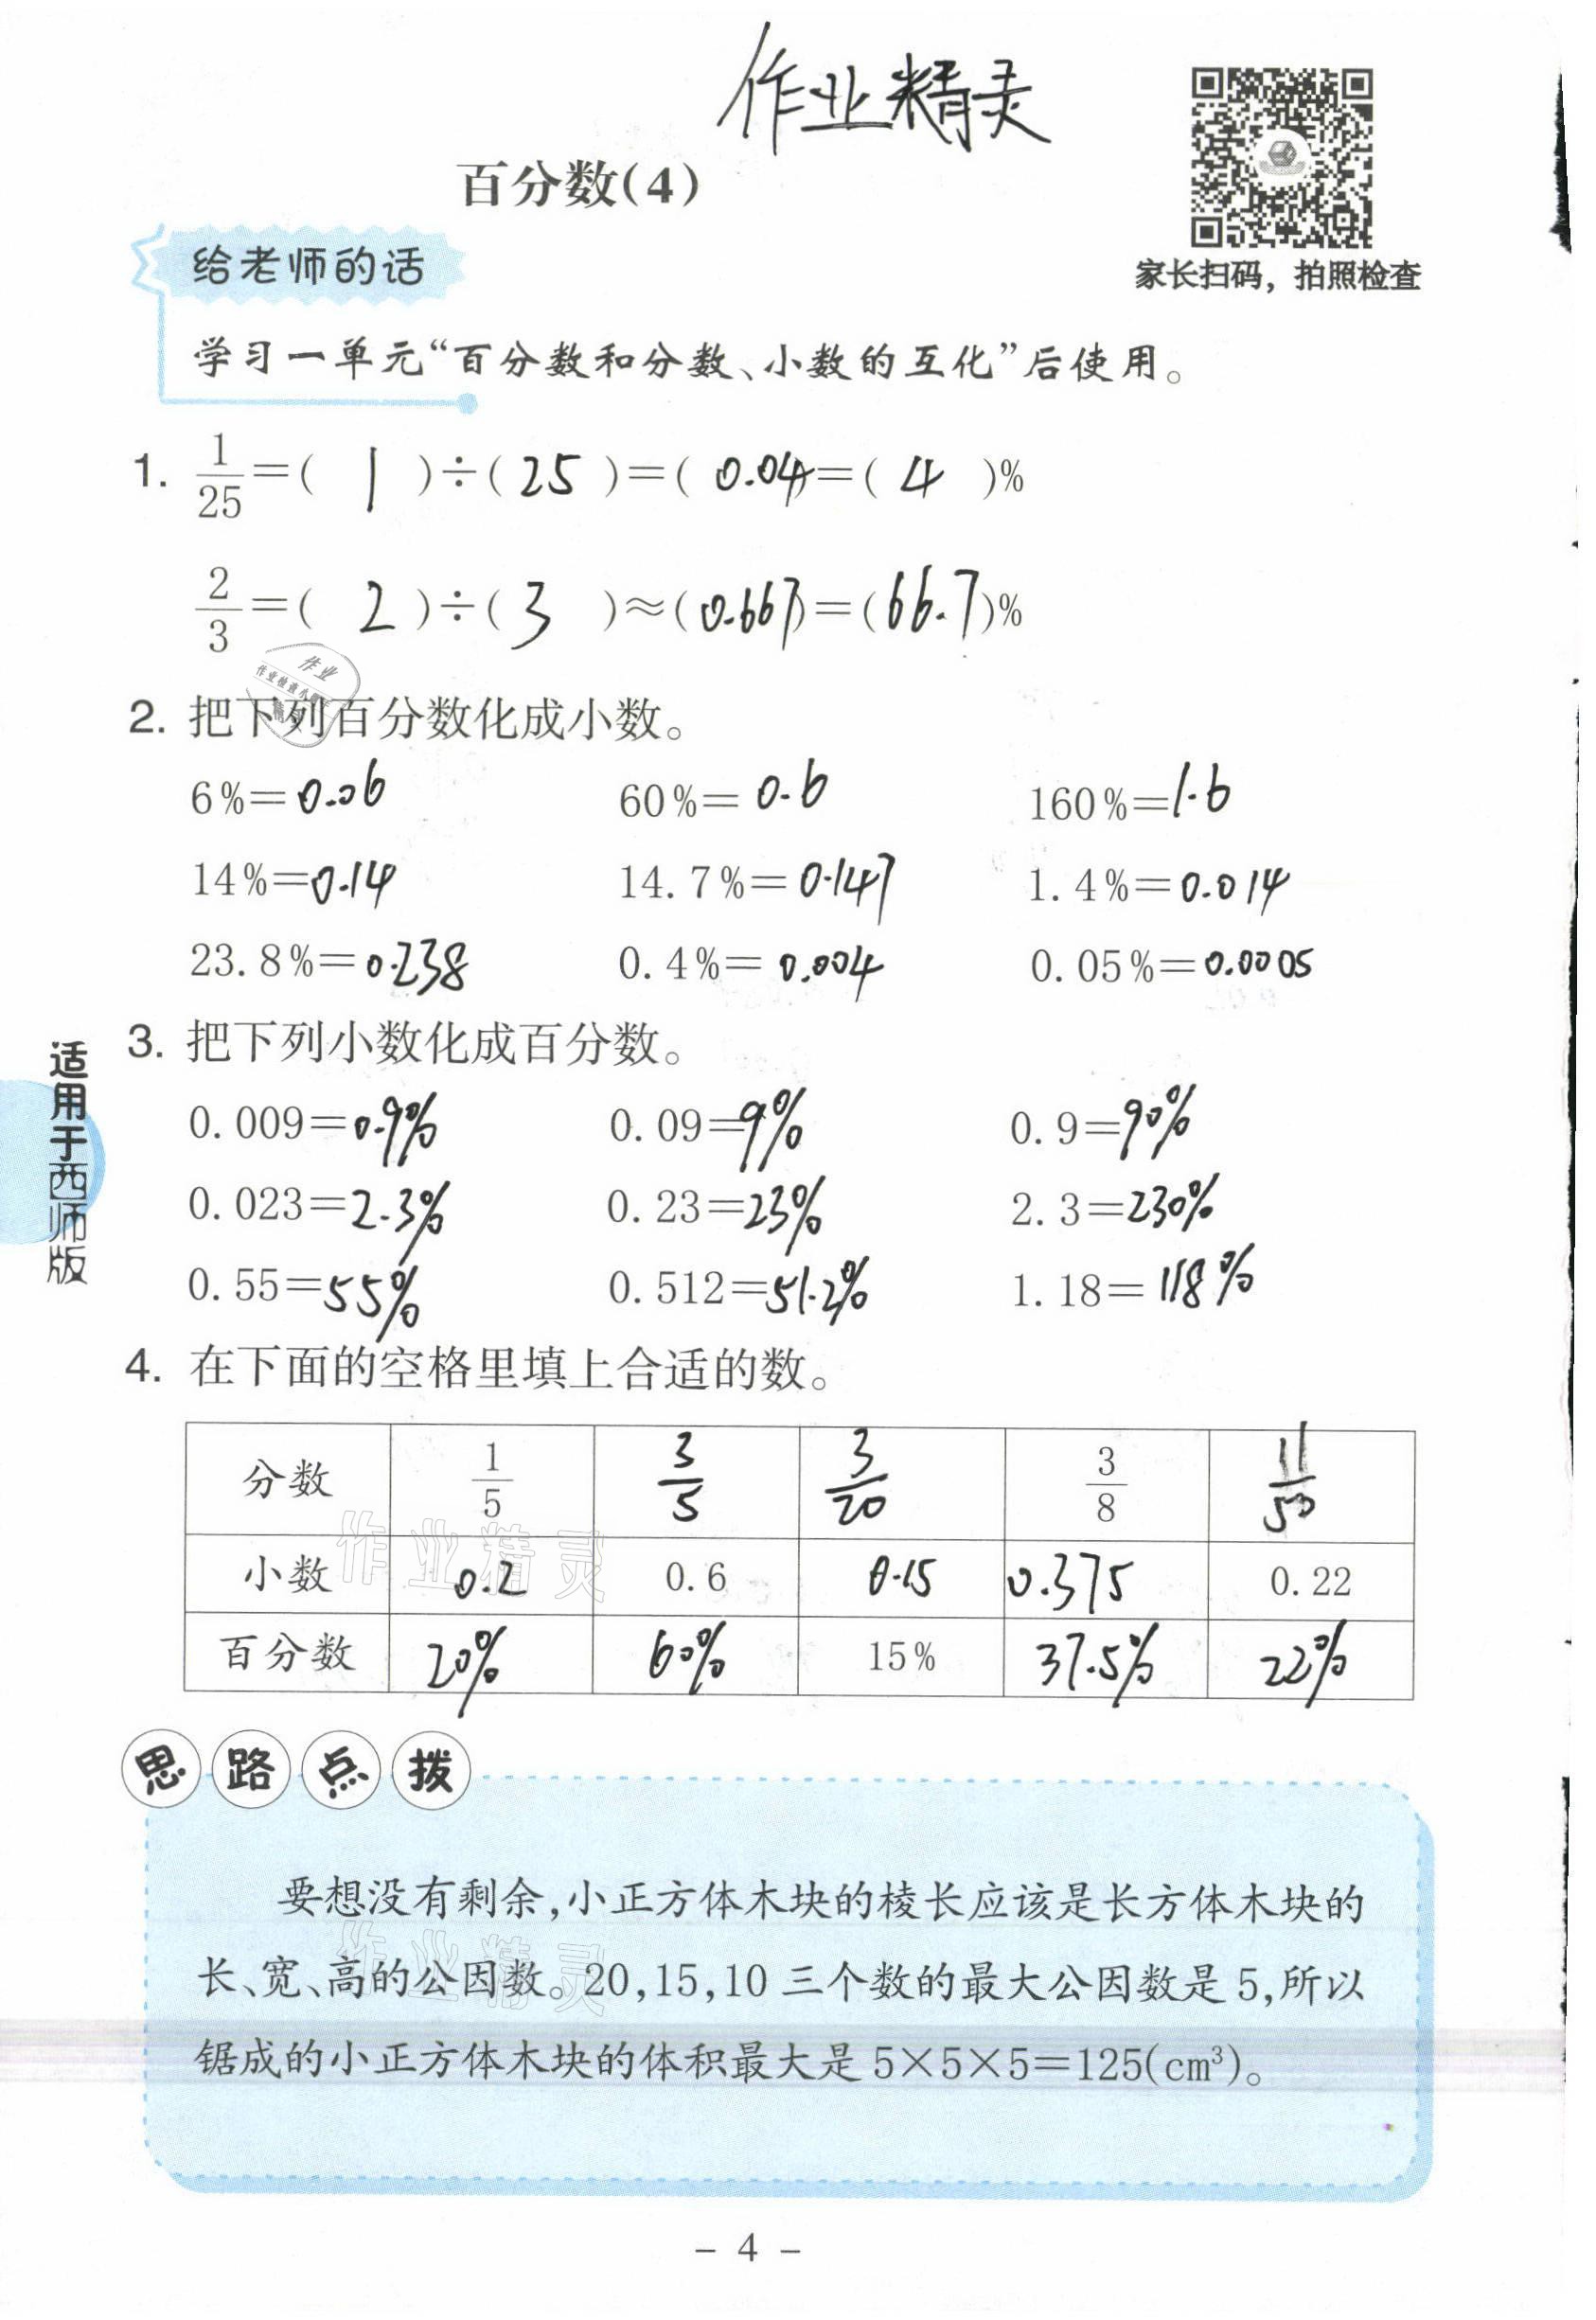 作业精灵
百分数(4)
家长扫码，拍照检查
给老师的话
学习一单元“百分数和分数、小数的互化”后使用。
1. 1/25=( 1 )÷( 25 )=( 0.04 )=( 4 )%
2/3=( 2 )÷( 3 )≈( 0.667 )=( 66.7 )%
作业
作业检查小帮手
精灵
2. 把下列百分数化成小数。
6%=0.06 60%=0.6 160%=1.6
14%=0.14 14.7%=0.147 1.4%=0.014
23.8%=0.238 0.4%=0.004 0.05%=0.0005
3. 把下列小数化成百分数。
0.009=0.9% 0.09=9% 0.9=90%
0.023=2.3% 0.23=23% 2.3=230%
0.55=55% 0.512=51.2% 1.18=118%
适用于西师版
4. 在下面的空格里填上合适的数。
分数 1/5 3/5 3/20 3/8 11/50
小数 0.2 0.6 0.15 0.375 0.22
百分数 20% 60% 15% 37.5% 22%
作业精灵
思路点拨
要想没有剩余,小正方体木块的棱长应该是长方体木块的
长、宽、高的公因数。20,15,10三个数的最大公因数是5,所以
锯成的小正方体木块的体积最大是5×5×5=125(cm³)。
作业精灵
- 4 -